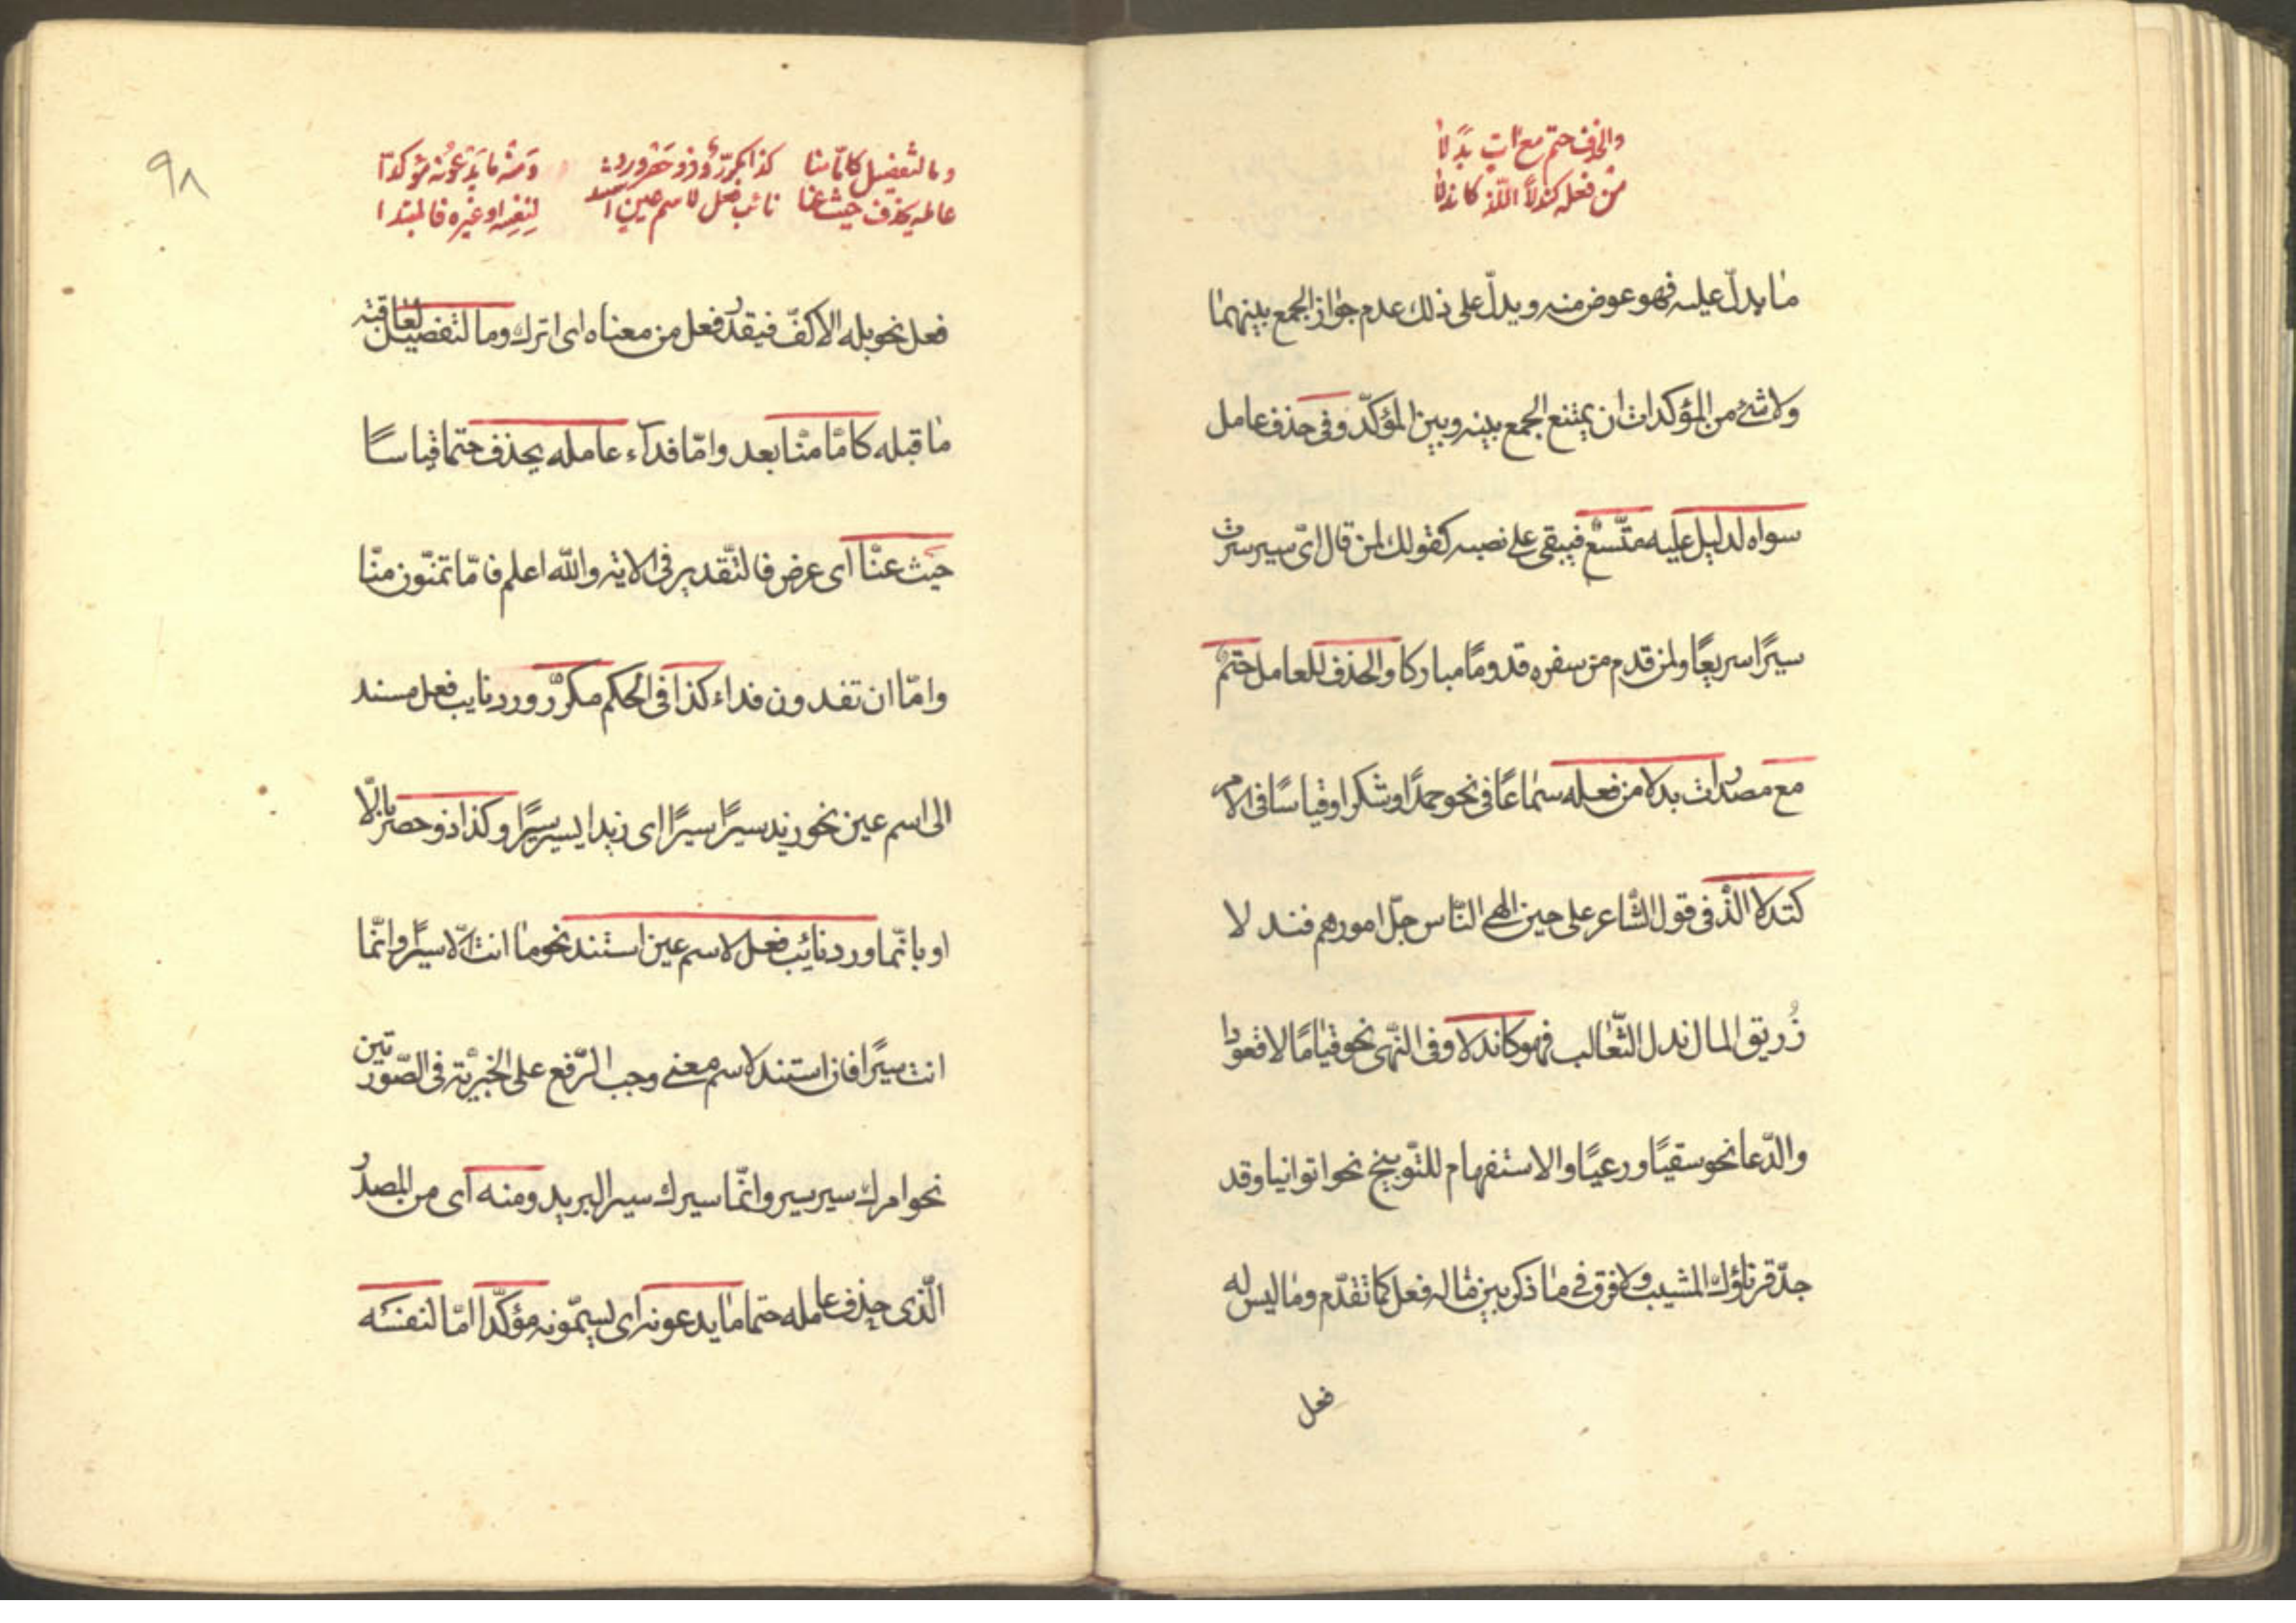 والحذف حتم مع آت بدلا
من فعله كندلا اللذ كاندلا
ما يدلّ عليه فهو عوض منه ويدلّ على ذلك عدم جواز الجمع بينهما
ولا شئ من المؤكدات ان يمتنع الجمع بينه وبين المؤكّد وفى حذف عامل
سواه لدليل عليه متّسع فيبقى على نصبه كقولك لمن قال اىّ سير سرت
سيرًا سريعًا ولمن قدم من سفره قدومًا مباركا والحذف للعامل حتم
مع مصدر ات بدلا من فعله سماعًا فى نحو حمدًا وشكرا وقياسًا فى الامر
كندلا الذ فى قول الشّاعر على حين الهى النّاس جلّ امورهم فندلا
زُريق المال ندل الثّعالب فهو كاندلا وفى النّهى نحو قيامًا لا قعودا
والدّعا نحو سقيًا ورعيًا والاستفهام للتّوبيخ نحو اتوانيا وقد
جدّ قرناؤك المشيب ولا فرق فى ما ذكر بين ما له فعل كما تقدّم وما ليس له
فعل
٩٨
وما لتفضيل كامّا منّا كذا مكرّر وذو حصر ورد ومنه ما يدعونه مؤكدا
عامله يحذف حيث عنّا نائب فعل لاسم عين استند لنفسه او غيره فالمبتدا
فعل نحو بله الاكفّ فيقدر فعل من معناه اى اترك وما لتفضيل لعاقبة
ما قبله كامّا منّا بعد وامّا فدآء عامله يحذف حتما قياسًا
حيث عنّا اى عرض فالتّقدير فى الاية والله اعلم فامّا تمنّون منّا
وامّا ان تفدون فداء كذا فى الحكم مكرّر ورد نايب فعل مسند
الى اسم عين نحو زيد سيرًا سيرًا اى زيدا يسير سيرًا وكذا ذو حصر بالّا
او بانّما ورد نائب فعل لاسم عين استند نحو ما انت الّا سيرًا وانّما
انت سيرًا فان استند لاسم معنى وجب الرّفع على الخبريّة فى الصّورتين
نحو امرك سير سير وانّما سيرك سير البريد ومنه اى من المصدر
الّذى حذف عامله حتما ما يدعونه اى يسمّونه مؤكّدا امّا لنفسه